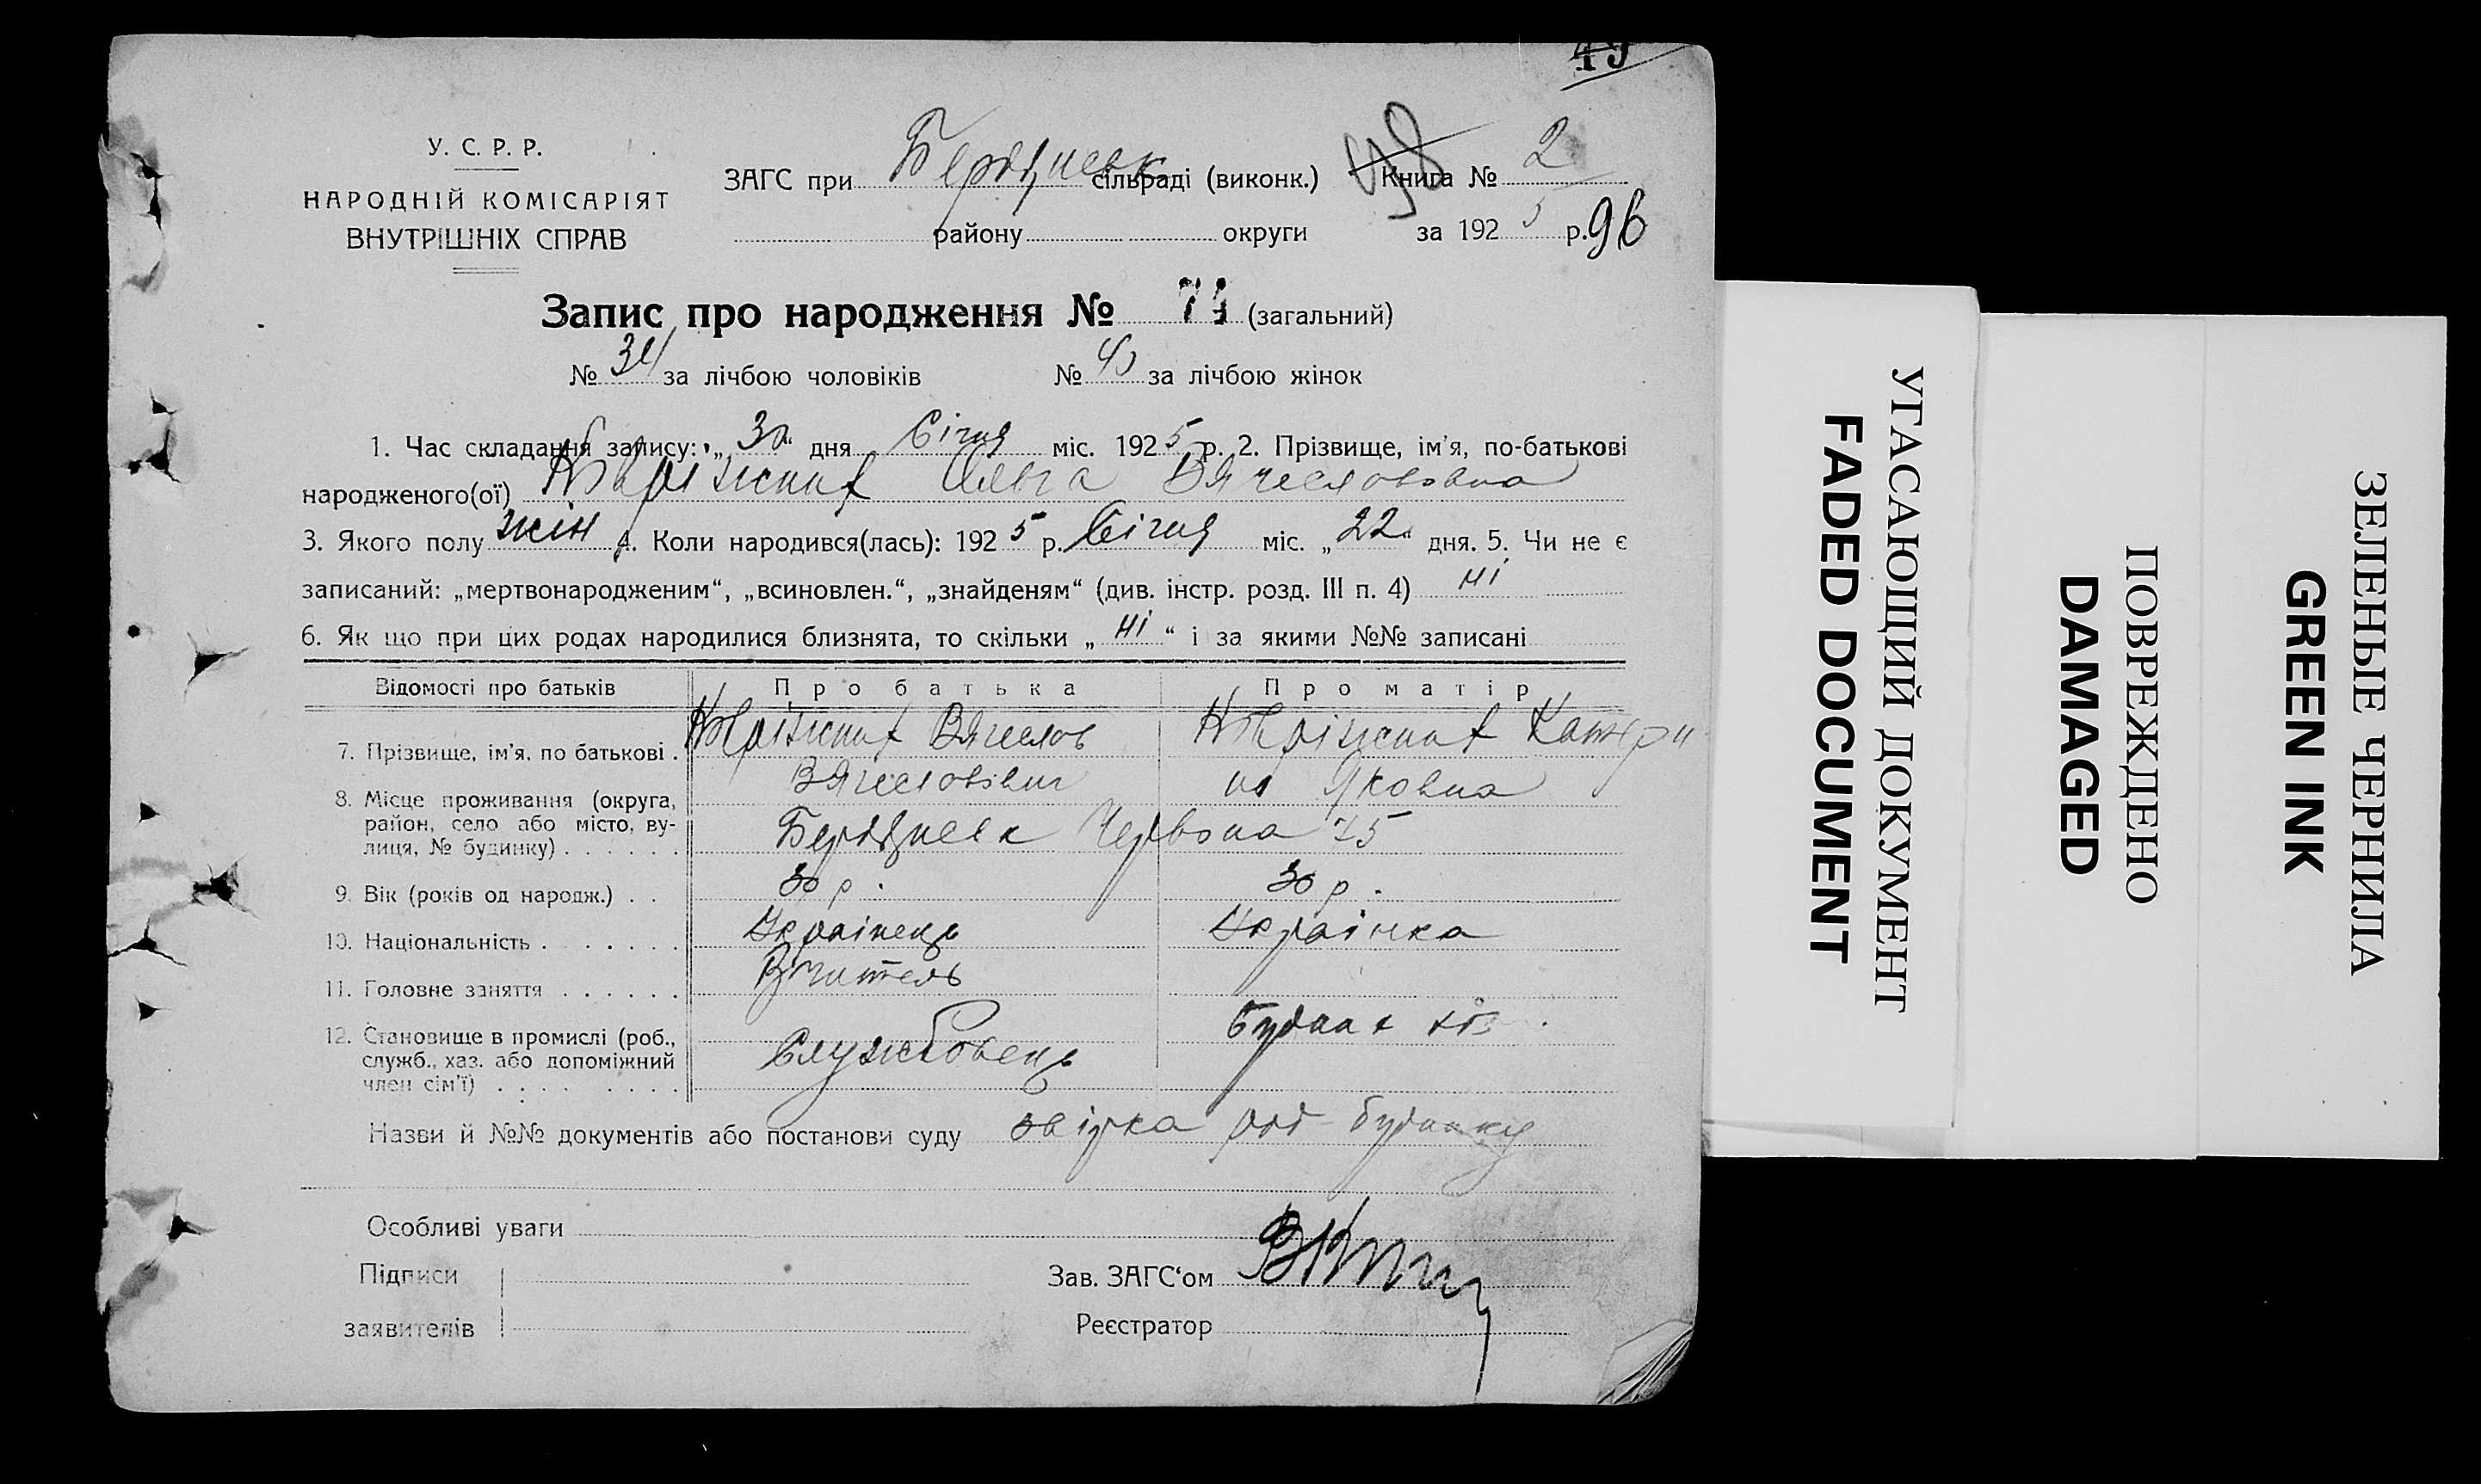 У. С. Р. Р.
НАРОДНІЙ КОМІСАРІЯТ
ВНУТРІШНІХ СПРАВ
ЗАГС при сільраді (виконк.) Книга № 2
району округи за 1925 р. 96
Запис про народження № 74 (загальний)
№ 34 за лічбою чоловіків № 40 за лічбою жінок
1. Час складання запису: „30“ дня Січня міс. 1925 р. 2. Прізвище, ім'я, по-батькові
народженого(ої) Ольга Вячеслововна
3. Якого полу жін 4. Коли народився(лась): 1925 р. Січня міс. „22“ дня. 5. Чи не є
записаний: „мертвонародженим“, „всиновлен.“, „знайденям“ (див. інстр. розд. III п. 4) ні
6. Як що при цих родах народилися близнята, то скільки „ні“ і за якими №№ записані
Відомості про батьків Про батька Про матір
7. Прізвище, ім'я, по батькові . Вячеслов Катери
Вячесловівич на Яковна
8. Місце проживання (округа,
район, село або місто, ву-
лиця, № будинку) . . . . . . Червона 75
9. Вік (років од народж.) . . 30 р. 30 р.
10. Національність . . . . . . . Українець Українка
11. Головне заняття . . . . . . Вчитель
12. Становище в промислі (роб.,
служб., хаз. або допоміжний
член сім'ї) . . . . . . . . Службовець
Назви й №№ документів або постанови суду будинку
Особливі уваги
Підписи Зав. ЗАГС‘ом
заявителів Реєстратор
УГАСАЮЩИЙ ДОКУМЕНТ
FADED DOCUMENT
ПОВРЕЖДЕНО
DAMAGED
ЗЕЛЕНЫЕ ЧЕРНИЛА
GREEN INK